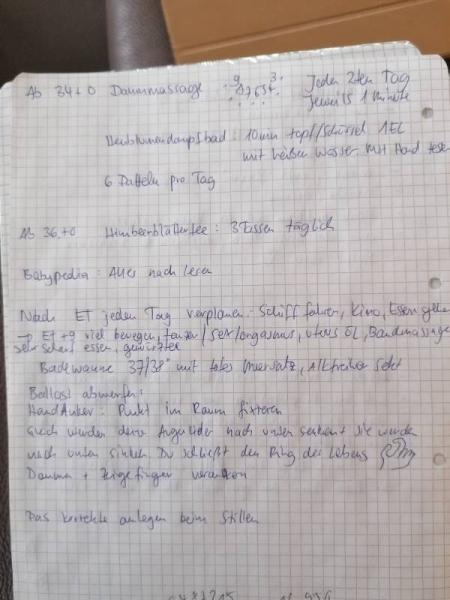 Ab 34+0 Dammmassage 9 3 Jeden 2ten Tag
Jeweils 1 Minute
Heublumendampfbad: 10 min Topf/Schüssel 1EL
mit heißen Wasser. Mit Hand testen
6 Datteln pro Tag
Ab 36+0 Himbeerblättertee: 3 Tassen täglich
Babypedia: Alles nach lesen
Nach ET jeden Tag verplanen: Schiff fahren, Kino, Essen gehen
→ ET+9 viel bewegen, tanzen/Sex/Orgasmus, Uterus ÖL, Bauchmassage
sehr scharf essen, gewürztee
Badewanne 37/38° mit totes Meersalz, alkfreier Sekt
Ballast abwerfen:
HandAnker: Punkt im Raum fixieren
Gleich werden deine Augenlider nach unten sie werden
nach unten sinken Du schließt den Ring des Lebens
Daumen + Zeigefinger
Das korrekte anlegen beim Stillen